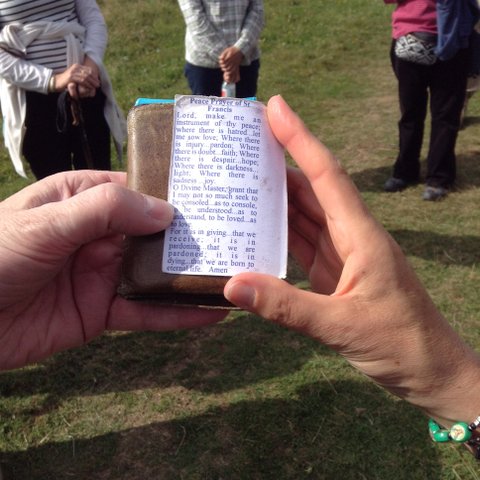 Peace Prayer of St
Francis
Lord, make me an
instrument of thy peace;
where there is hatred...let
me sow love; Where there
is injury pardon; Where
there is doubt...faith; Where
there is despair...hope;
Where there is darkness...
light; Where there is
sadness...joy.
O Divine Master, grant that
I may not so much seek to
be consoled...as to console,
be understood...as to
understand, to be loved...as
to love
For it is in giving...that we
receive; it is in
pardoning...that we are
pardoned; it is in
dying...that we are born to
eternal life. Amen